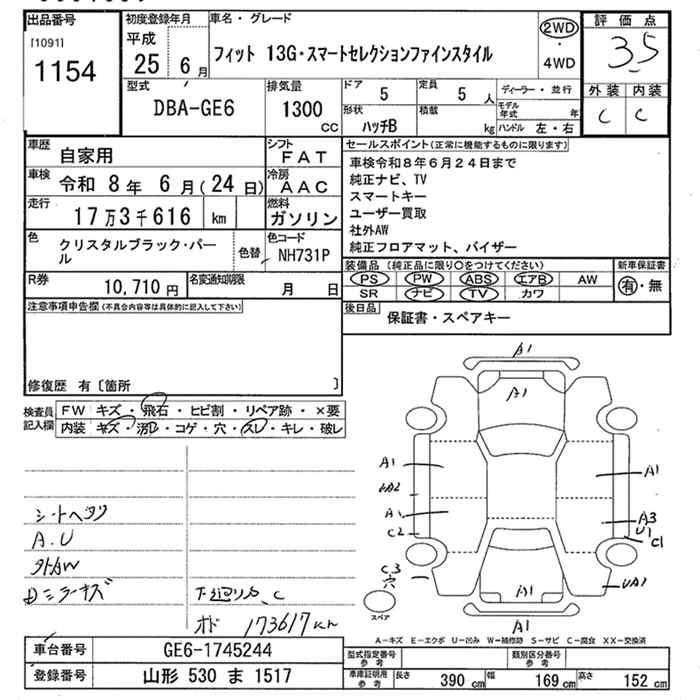 出品番号
[1091]
1154
初度登録年月
平成
25 6月
車名・グレード
フィット 13G・スマートセレクションファインスタイル
2WD
・
4WD
評価点
3.5
外装 内装
C C
型式
DBA-GE6
排気量
1300
cc
ドア
5
定員
5 人
形状
ハッチB
積載
kg
ディーラー・並行
モデル年式 年
ハンドル 左・右
車歴
自家用
シフト
FAT
車検
令和 8年 6月(24日)
冷房
AAC
走行
17万3千616 km
燃料
ガソリン
色
クリスタルブラック・パール
色替
色コード
NH731P
R券
10,710 円
名変通知期限
月 日
セールスポイント(正常に機能するものに限ります)
車検令和8年6月24日まで
純正ナビ、TV
スマートキー
ユーザー買取
社外AW
純正フロアマット、バイザー
装備品(純正品に限り○をつけてください)
PS PW ABS エアB AW
SR ナビ TV カワ
新車保証書
有・無
後日品
保証書・スペアキー
注意事項申告欄(不具合内容等は具体的に記入して下さい)
修復歴 有〔箇所 〕
検査員記入欄
FW キズ・飛石・ヒビ割・リペア跡・×要
内装 キズ・汚レ・コゲ・穴・スレ・キレ・破レ
シートヘタリ
A.U
外AW
Dミラーキズ
下廻りS、C
173617km
A1
A1
A1
UA2
A1
C2
C3
穴
A1
A3
U1
C1
UA1
A1
A1
スペア
A-キズ E-エクボ U-凹み W-補修跡 S-サビ C-腐食 XX-交換済
車台番号
GE6-1745244
登録番号
山形 530 ま 1517
型式指定番号
参考
類別区分番号
参考
車庫証明用
参考
長さ 390 cm
幅 169 cm
高さ 152 cm